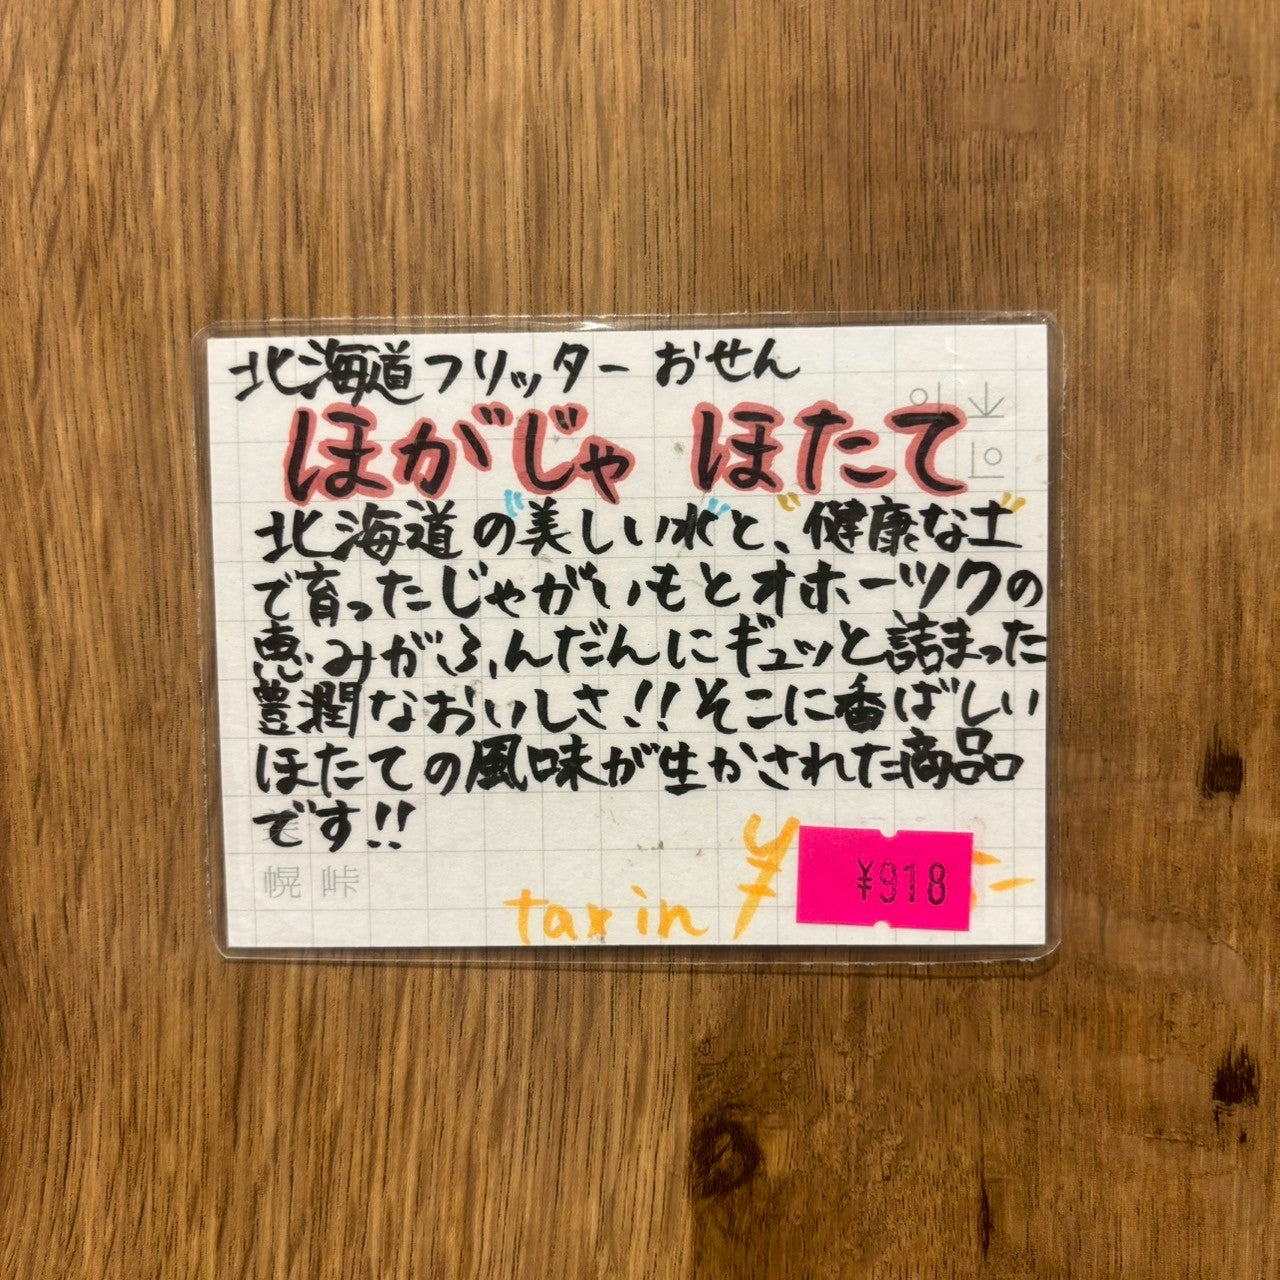 北海道フリッター おせん
ほがじゃ ほたて
北海道の"美しい水"と、"健康な土"
で育ったじゃがいもとオホーツクの
恵みがふんだんにギュッと詰まった
豊潤なおいしさ!!そこに香ばしい
ほたての風味が生かされた商品
です!!
幌 峠
tax in ¥
¥918